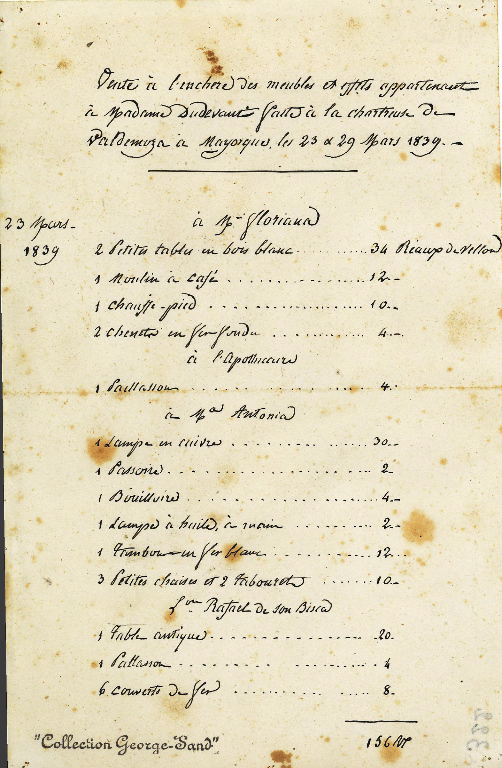 Vente à l'enchere des meubles et effets appartenant
à Madame Dudevant faite à la chartreuse de
Valdemoza à Mayorque, les 23 & 29 Mars 1839. -
23 Mars-
1839
à Mr Floriana
2 Petites tables en bois blanc ........ 34 Reaux de Vellon
1 Moulin à Café ............ 12-
1 Chauffe-pied ............ 10-
2 Chenets en fer fondu ........ 4-
à l'Apothicaire
1 Paillasson ............ 4-
à Ma Antonia
1 Lampe en cuivre ........ 30-
1 Passoire ............ 2-
1 Bouilloire ............ 4-
1 Lampe à huile, à main ........ 2-
1 Tambour en fer blanc ........ 12-
3 Petites chaises et 2 Tabourets ...... 10-
Rafael de son Bisca
1 Table antique ............ 20-
1 Paillasson ............ 4
6 Couverts de fer .......... 8-
156
"Collection George-Sand"